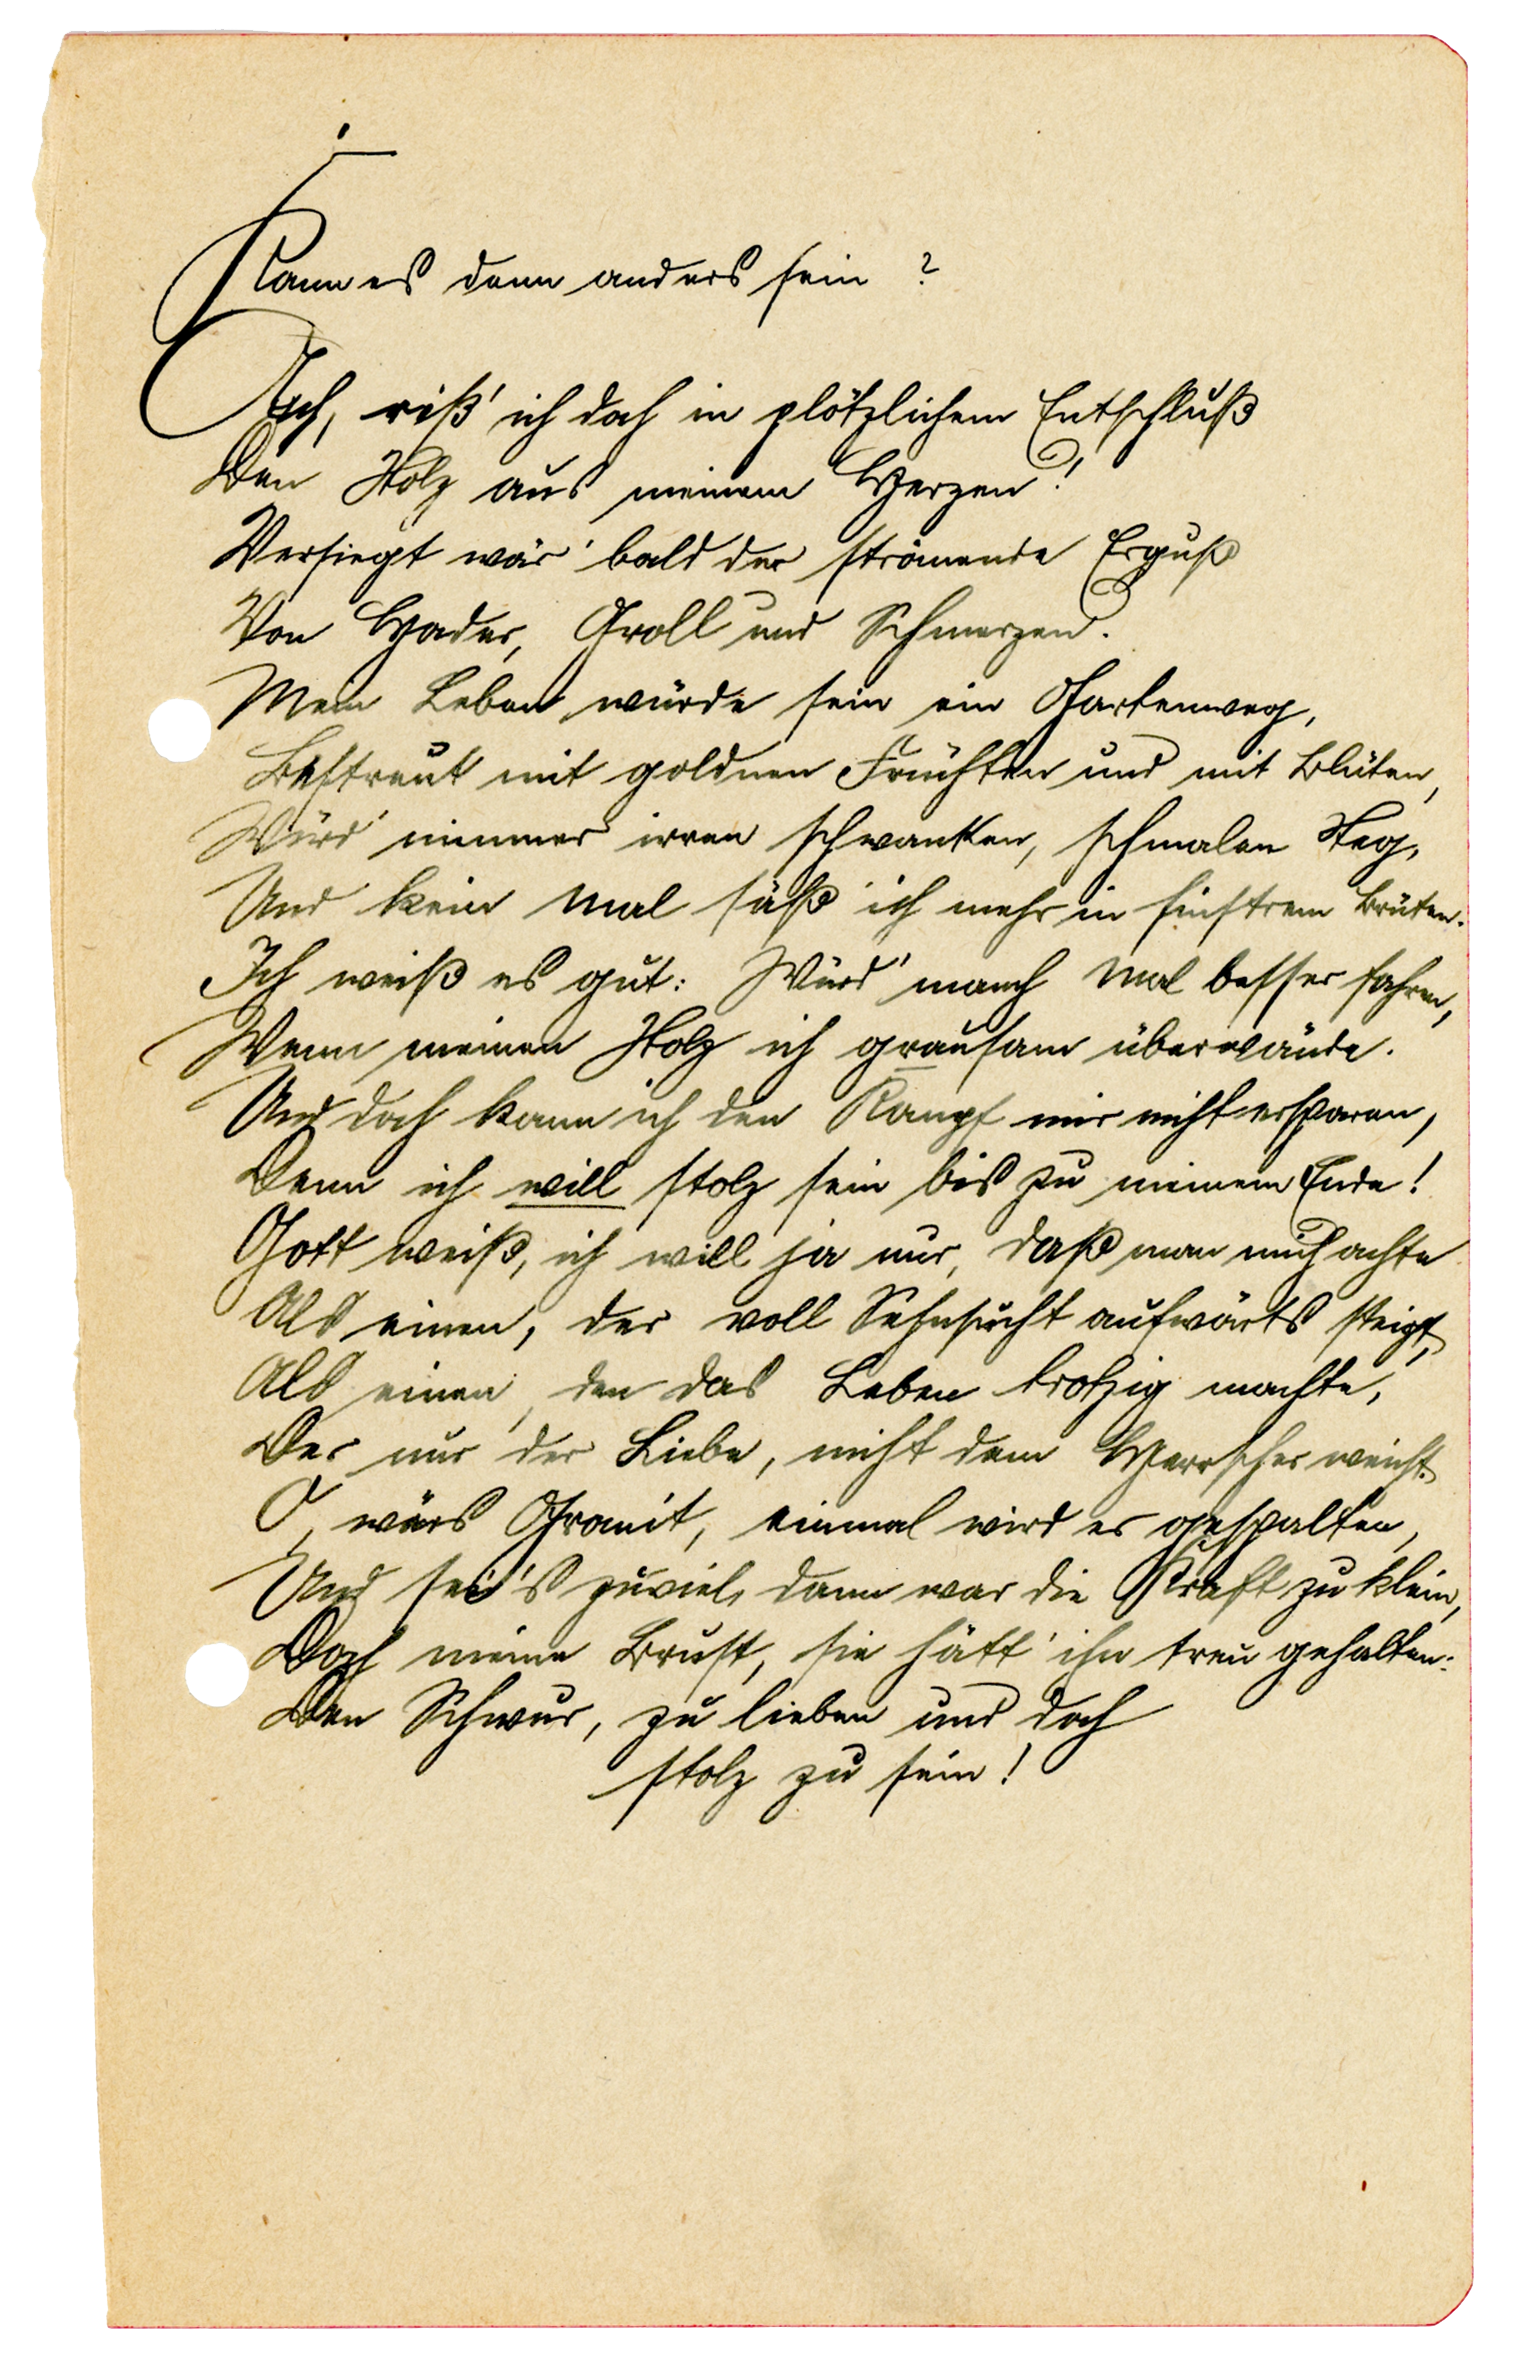 Kann es denn anders sein ?
Ach, riß' ich doch in plötzlichem Entschluß
Den Stolz aus meinem Herzen!
Versiegt wär' bald der strömende Erguß
Von Hader, Groll und Schmerzen.
Mein Leben würde sein ein Gartenweg,
Bestreut mit goldnen Früchten und mit Blüten,
Würd' nimmer irren schwanken, schmalen Steg,
Und kein Mal säß' ich mehr in finstrem Brüten.
Ich weiß es gut: Würd' manch Mal besser fahren,
Wenn meinen Stolz ich grausam überwände.
Und doch kann ich den Kampf mir nicht ersparen,
Denn ich will stolz sein bis zu meinem Ende!
Gott weiß, ich will ja nur, daß man mich achte
Als einen, der voll Sehnsucht aufwärts steigt,
Als einen, den das Leben trotzig machte,
Der nur der Liebe, nicht dem Herrscher weicht.
O, wärs Granit, einmal wird er gespalten,
Und sei's zuviel, dann war die Kraft zu klein,
Doch meine Brust, sie hätt' ihn treu gehalten:
Den Schwur, zu lieben und doch
stolz zu sein!